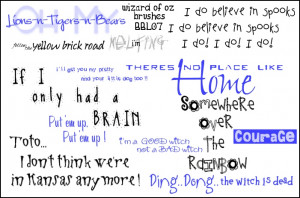 Lions-n-Tigers-n-Bears
OH MY
wizard of oz
brushes
BBL07
I do believe in spooks
I do believe in spooks
I do! I do! I do!
follow the yellow brick road
MELTING
I'll get you my pretty
and your little dog too!!
THERES NO PLACE LIKE
Home
If I
only had a
BRAIN
Put 'em up.
Put 'em up!
SomewheRe
oveR
the
RaiNBOW
CouraGe
i'm a GOOD witch
not a BAD witch
Toto...
I dont think we're
in Kansas any more!
Ding..Dong.. the witch is dead